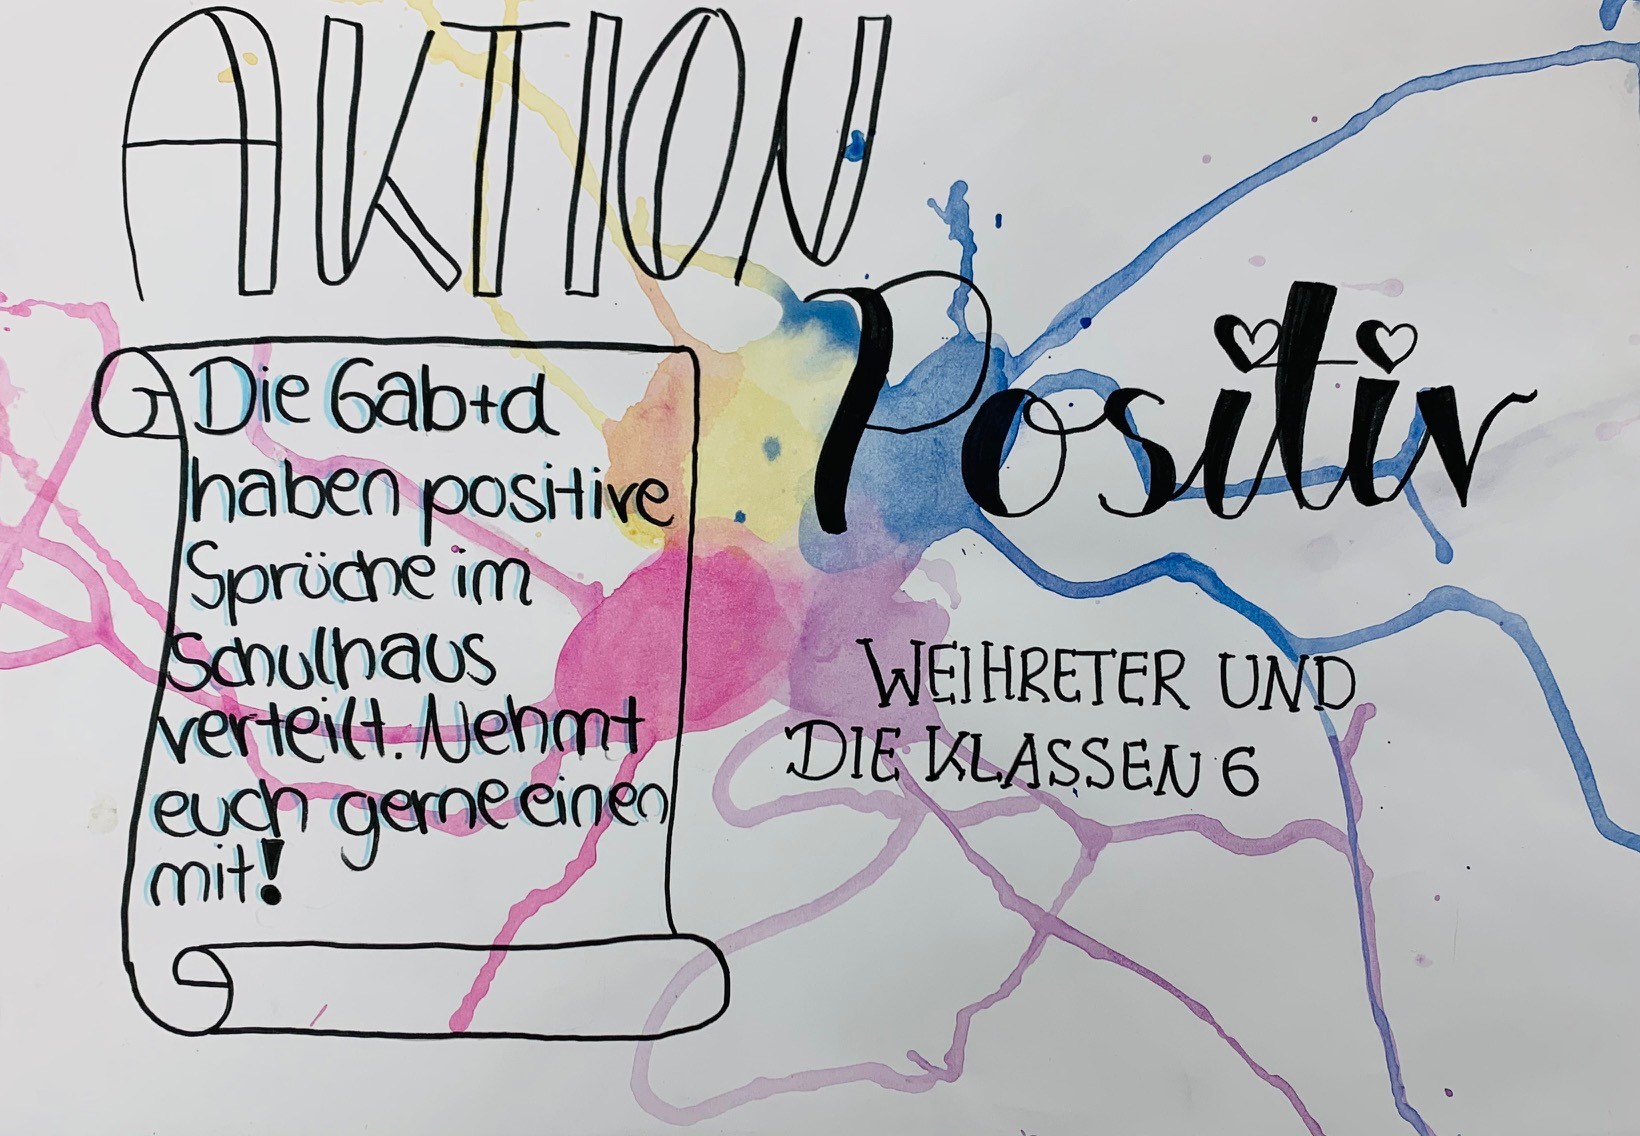 AKTION
Positiv
Die Gab+d
haben positive
Sprüche im
Schulhaus
verteilt. Nehmt
euch gerne einen
mit!
WEIHRETER UND
DIE KLASSEN 6